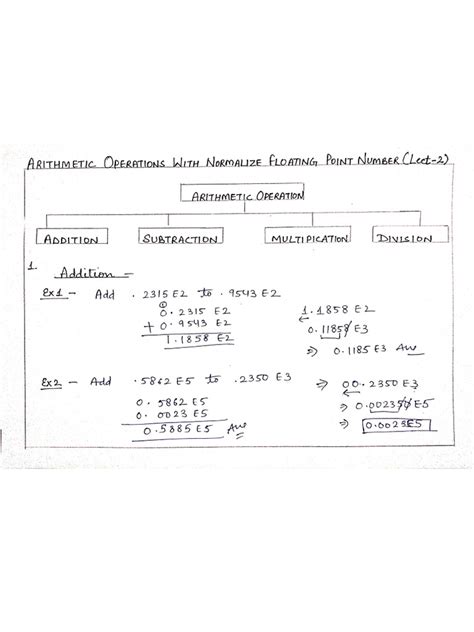 ARITHMETIC OPERATIONS WITH NORMALIZE FLOATING POINT NUMBER (Lect-2)
ARITHMETIC OPERATION
ADDITION SUBTRACTION MULTIPICATION DIVISION
1. Addition -
Ex1 - Add .2315 E2 to .9543 E2
1
0.2315 E2
+ 0.9543 E2
1.1858 E2
1.1858 E2
0.11858 E3
⇒ 0.1185 E3 Ans
Ex2 - Add .5862 E5 to .2350 E3
0.5862 E5
0.0023 E5
0.5885 E5 Ans
⇒ 00.2350 E3
⇒ 0.002350 E5
⇒ 0.0023E5